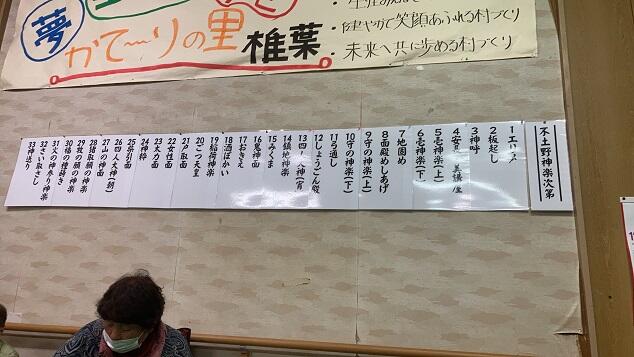 夢
かてーりの里
椎葉
・健やかで笑顔あふれる村づくり
・未来へ共に歩める村づくり
不土野神楽次第
2板起し
3神呼
4安永 美橋 屋
5壱神楽(上)
6壱神楽(下)
7地固め
8面殿めしあげ
9守の神楽(上)
10守の神楽(下)
11弓通し
12しょうごん殿
13四人神(宵)
14鎮地神楽
15みくま
16鬼神面
17おきえ
18酒ばかい
19稲荷神楽
20ごつ天皇
21刀取面
22女性面
23太力面
24神粋
25茶引面
26四人大神(朝)
27山の神面
28猪取願の神楽
29牧の願の神楽
30椿の種蒔き
31火の神舞り神楽
32さい取さし
33神送り